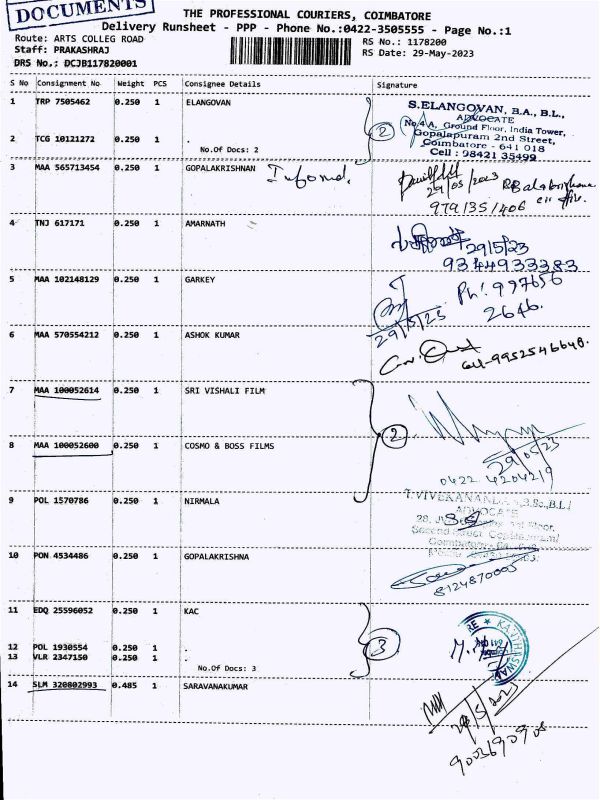 DOCUMENTS
THE PROFESSIONAL COURIERS, COIMBATORE
Delivery Runsheet - PPP - Phone No.:0422-3505555 - Page No.:1
Route: ARTS COLLEG ROAD
Staff: PRAKASHRAJ
DRS No.: DCJB117820001
RS No.: 1178200
RS Date: 29-May-2023
S No Consignment No Weight PCS Consignee Details Signature
1 TRP 7505462 0.250 1 ELANGOVAN
S.ELANGOVAN, B.A., B.L.,
ADVOCATE
No.4 A, Ground Floor, India Tower,
Gopalapuram 2nd Street,
Coimbatore - 641 018
Cell : 98421 35499
2
2 TCG 10121272 0.250 1 .
No.Of Docs: 2
3 MAA 565713454 0.250 1 GOPALAKRISHNAN
29/05/2023
4 TNJ 617171 0.250 1 AMARNATH
29/5/23
9344933383
5 MAA 102148129 0.250 1 GARKEY
Ph: 997656
2646.
29/5/23
6 MAA 570554212 0.250 1 ASHOK KUMAR
9952546648.
7 MAA 100052614 0.250 1 SRI VISHALI FILM
2
29/05/23
8 MAA 100052600 0.250 1 COSMO & BOSS FILMS
0422 4204219
9 POL 1570786 0.250 1 NIRMALA
ADVOCATE
10 PON 4534486 0.250 1 GOPALAKRISHNA
8124870005
11 EDQ 25596052 0.250 1 KAC
3
12 POL 1930554 0.250 1 .
13 VLR 2347150 0.250 1 .
No.Of Docs: 3
14 SLM 320802993 0.485 1 SARAVANAKUMAR